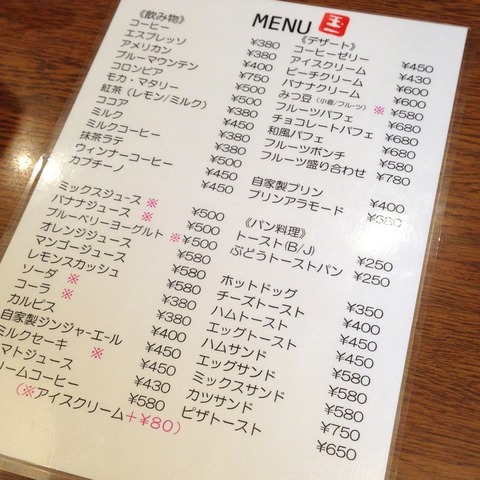 MENU 王
《飲み物》
コーヒー ¥380
エスプレッソ ¥380
アメリカン ¥400
ブルーマウンテン ¥750
コロンビア ¥500
モカ・マタリー ¥500
紅茶（レモン/ミルク） ¥500
ココア
ミルク ¥380
ミルクコーヒー ¥450
抹茶ラテ ¥500
ウィンナーコーヒー ¥450
カプチーノ ¥450
ミックスジュース ※ ¥500
バナナジュース ※ ¥500
ブルーベリーヨーグルト ※ ¥500
オレンジジュース ¥580
マンゴージュース ¥580
レモンスカッシュ ¥580
ソーダ ※ ¥380
コーラ ※ ¥380
カルピス ¥400
自家製ジンジャーエール ¥450
ミルクセーキ ¥450
マトジュース ※ ¥430
ームコーヒー ¥580
（※アイスクリーム＋¥80）
《デザート》
コーヒーゼリー ¥450
アイスクリーム ¥430
ピーチクリーム ¥600
バナナクリーム ¥600
みつ豆（小倉/フルーツ） ※ ¥580
フルーツパフェ ¥680
チョコレートパフェ ¥680
和風パフェ ¥680
フルーツポンチ ¥580
フルーツ盛り合わせ ¥780
自家製プリン ¥400
プリンアラモード ¥580
《パン料理》
トースト(B/J) ¥250
ぶどうトーストパン ¥250
ホットドッグ ¥350
チーズトースト ¥400
ハムトースト ¥400
エッグトースト ¥450
ハムサンド ¥450
エッグサンド ¥580
ミックスサンド ¥580
カツサンド ¥750
ピザトースト ¥650